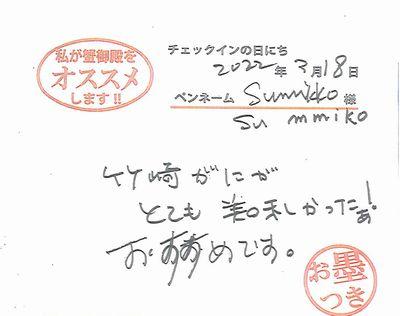 私が蟹御殿を
オススメ
します!!
チェックインの日にち
2022年3月18日
ペンネーム Sumikko 様
su mmiko
竹崎がにが
とても美味しかったぁ!
おすすめです。
お墨
つき